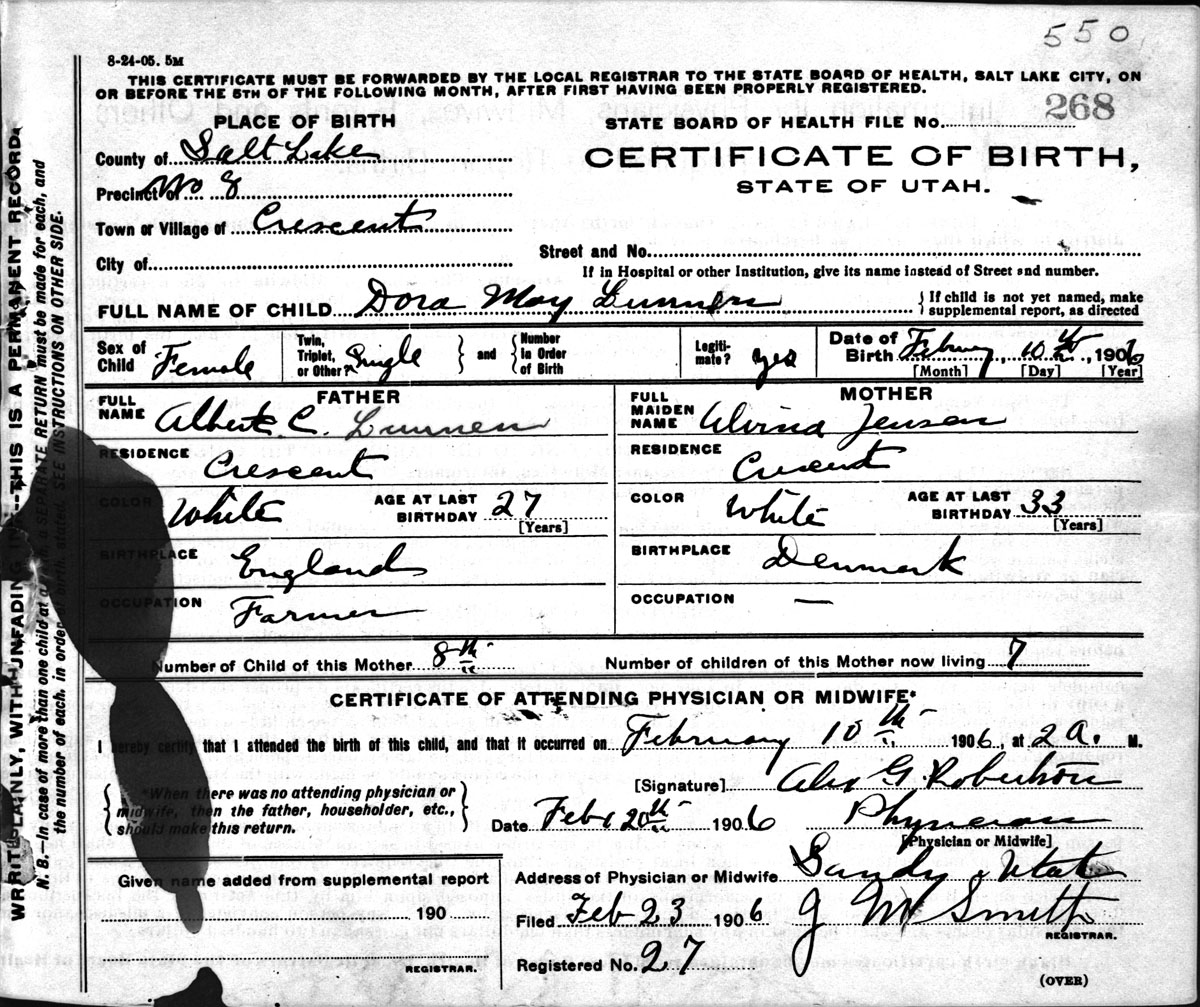 550
8-24-05. 5M
THIS CERTIFICATE MUST BE FORWARDED BY THE LOCAL REGISTRAR TO THE STATE BOARD OF HEALTH, SALT LAKE CITY, ON
OR BEFORE THE 5TH OF THE FOLLOWING MONTH, AFTER FIRST HAVING BEEN PROPERLY REGISTERED.
PLACE OF BIRTH
STATE BOARD OF HEALTH FILE No. 268
County of Salt Lake
CERTIFICATE OF BIRTH,
STATE OF UTAH.
Precinct of No 8
Town or Village of Crescent
City of
Street and No.
If in Hospital or other Institution, give its name instead of Street and number.
FULL NAME OF CHILD Dora May Lunnen
If child is not yet named, make
supplemental report, as directed
Sex of Child Female
Twin, Triplet, or Other? Single
and Number in Order of Birth
Legiti-mate? yes
Date of Birth February 10th, 1906
[Month] [Day] [Year]
FATHER
FULL NAME Albert C. Lunnen
RESIDENCE Crescent
COLOR White AGE AT LAST BIRTHDAY 27 [Years]
BIRTHPLACE England
OCCUPATION Farmer
MOTHER
FULL MAIDEN NAME Alvina Jensen
RESIDENCE Crescent
COLOR White AGE AT LAST BIRTHDAY 33 [Years]
BIRTHPLACE Denmark
OCCUPATION —
Number of Child of this Mother 8th
Number of children of this Mother now living 7
CERTIFICATE OF ATTENDING PHYSICIAN OR MIDWIFE*
I hereby certify that I attended the birth of this child, and that it occurred on February 10th 1906, at 2 a. M.
*When there was no attending physician or
midwife, then the father, householder, etc.,
should make this return.
[Signature] Alex G. Robertson
Date Feb 20th 1906 Physician
[Physician or Midwife]
Given name added from supplemental report
190
REGISTRAR.
Address of Physician or Midwife Sandy Utah
Filed Feb 23 1906 J M Smith
REGISTRAR.
Registered No. 27
(OVER)
WRITE PLAINLY, WITH UNFADING INK—THIS IS A PERMANENT RECORD.
N. B.—In case of more than one child at a birth, a SEPARATE RETURN must be made for each, and
the number of each, in order of birth, stated. SEE INSTRUCTIONS ON OTHER SIDE.